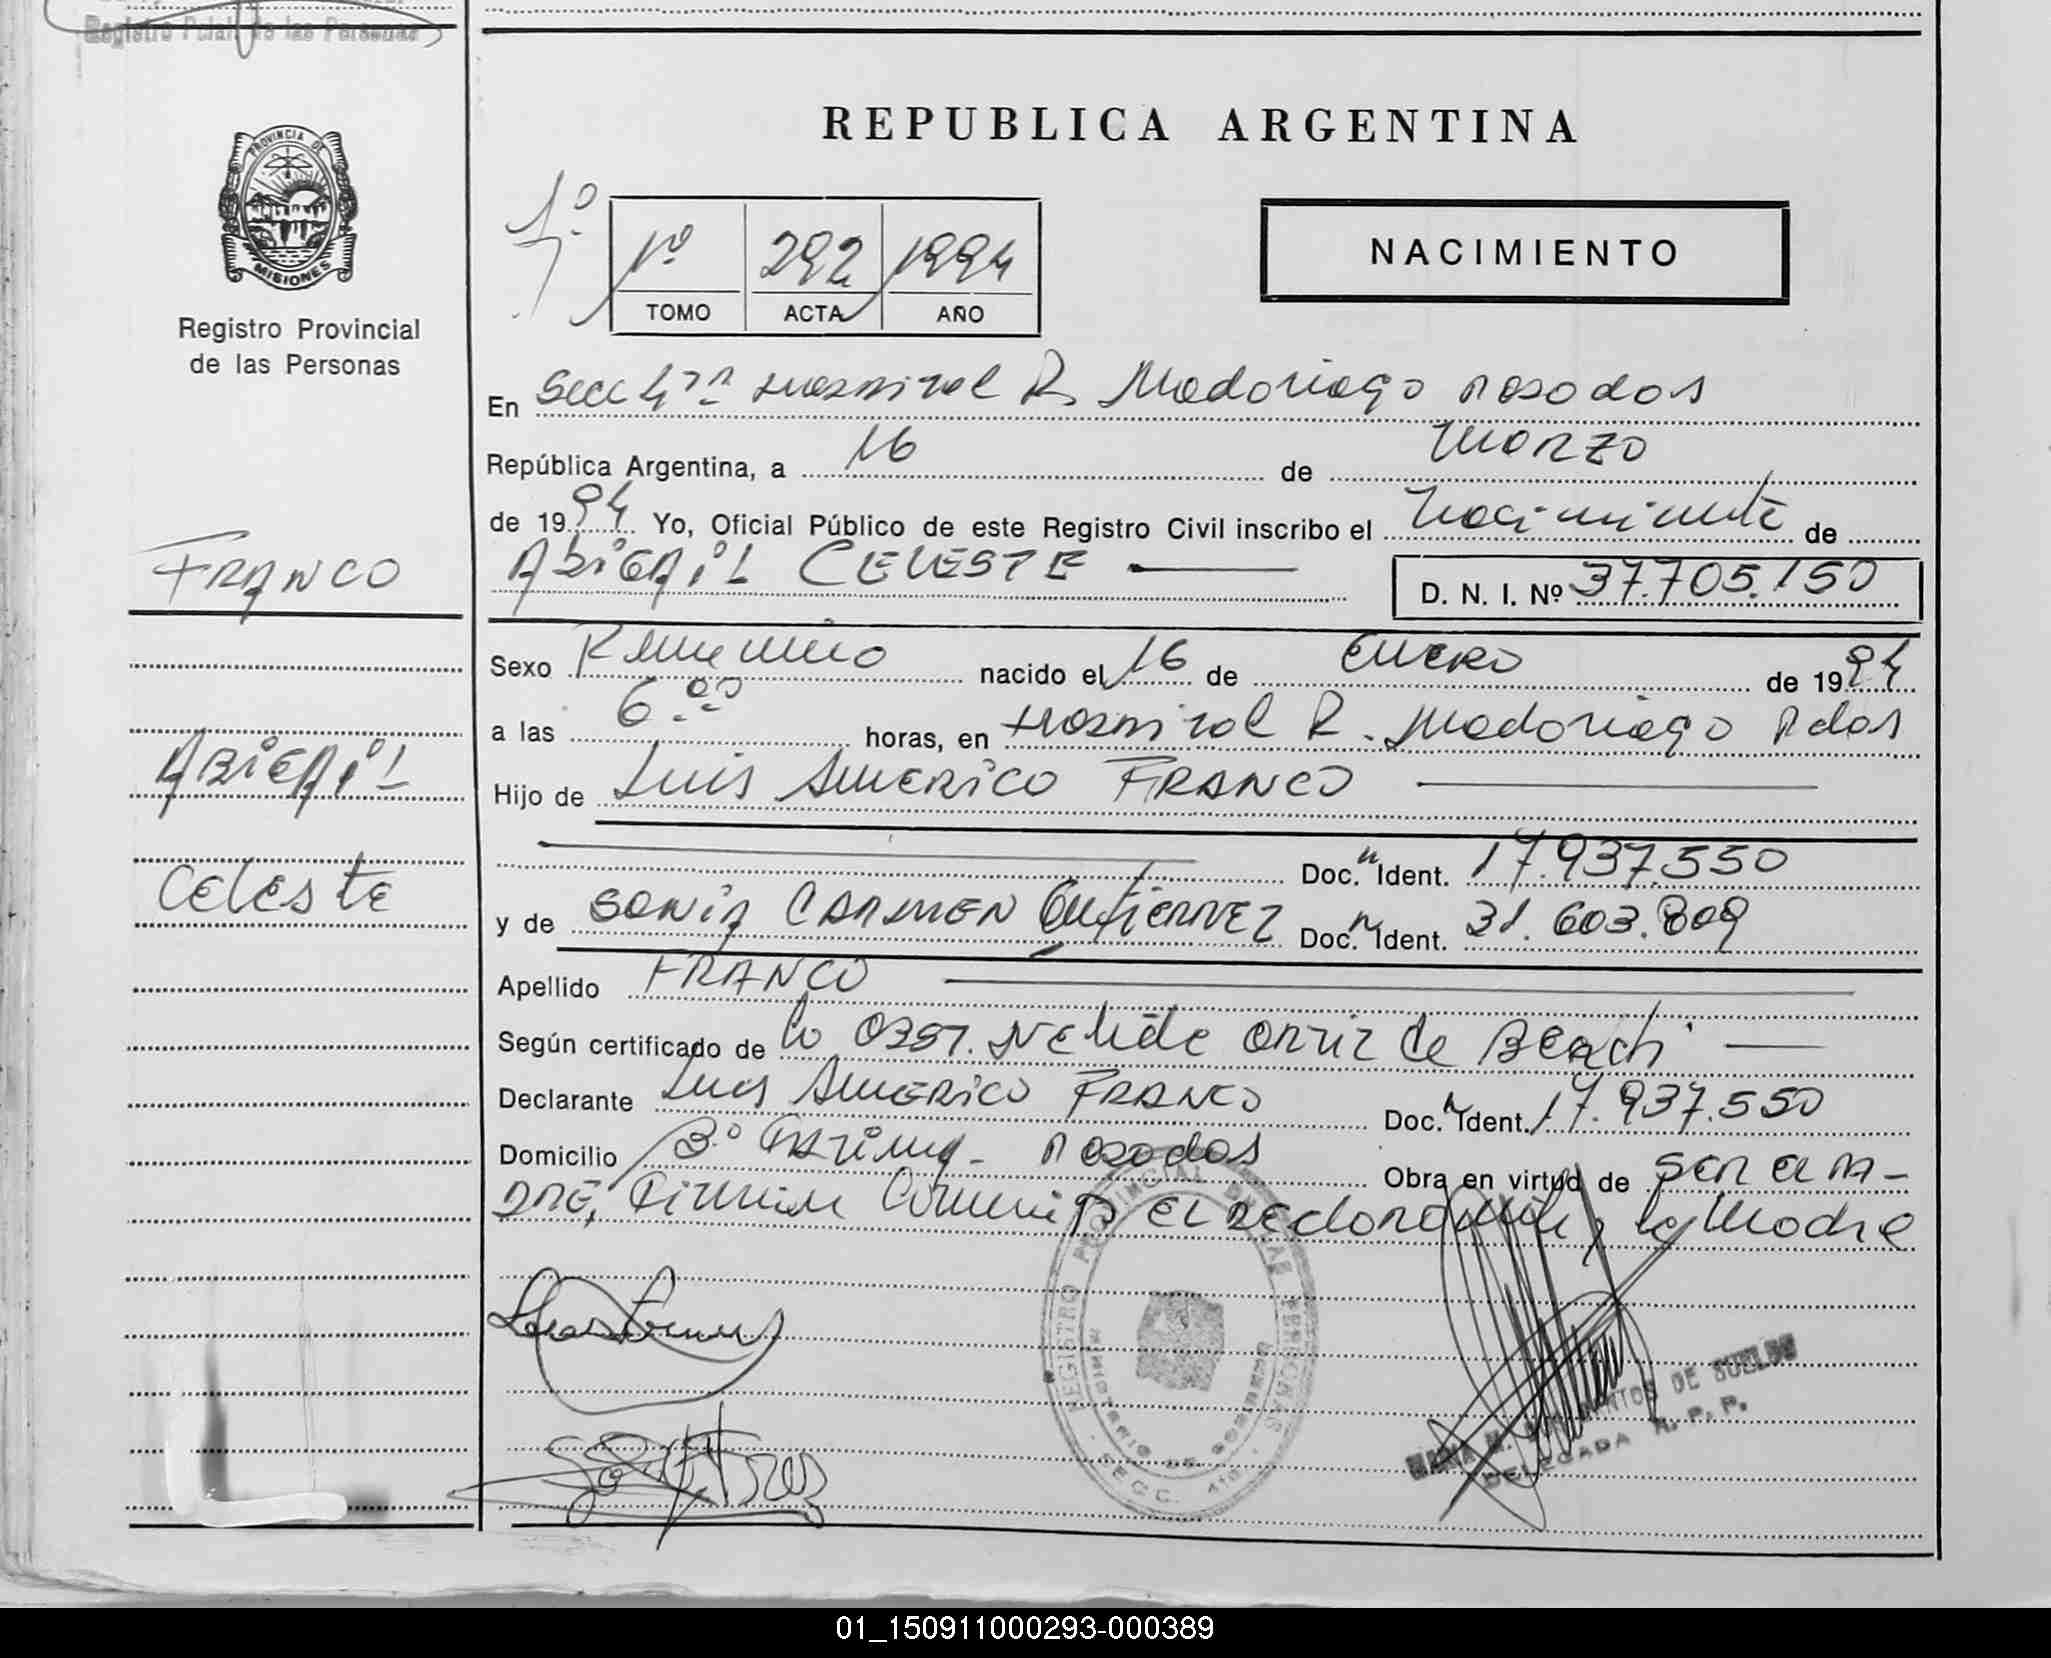 Registro Pcial. de las Personas
REPUBLICA ARGENTINA
PROVINCIA DE
MISIONES
Registro Provincial
de las Personas
1º
1º 292 1994
TOMO ACTA AÑO
NACIMIENTO
En Secc 4ta Hospital R. Madariaga Posadas
República Argentina, a 16 de Marzo
de 1994 Yo, Oficial Público de este Registro Civil inscribo el Nacimiento de
ABIGAIL CELESTE
D. N. I. Nº 37.705.150
FRANCO
ABIGAIL
Celeste
Sexo Femenino nacido el 16 de Enero de 1994
a las 6.00 horas, en Hospital R. Madariaga Pdas
Hijo de Luis Americo FRANCO
Doc. Ident. 17.937.550
y de SONIA CARMEN Gutierrez Doc. Ident. 31.603.809
Apellido FRANCO
Según certificado de la Obst. Nelide Ortiz de
Declarante Luis Americo FRANCO Doc. Ident. 17.937.550
Domicilio Posadas Obra en virtud de ser el PA-
DRE, Firman el declarante y la Madre
REGISTRO PROVINCIAL DE LAS PERSONAS
MINISTERIO DE GOBIERNO
SECC. 4ta.
DE SUELDO
DELEGADA R. P. P.
01_150911000293-000389